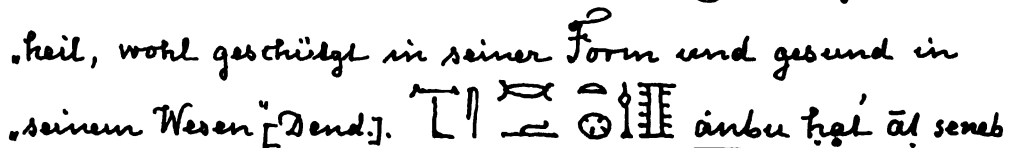 „heil, wohl geschützt in seiner Form und gesund in
„seinem Wesen“ [Dend.]. ånbu ḥaṭ āṭ seneb